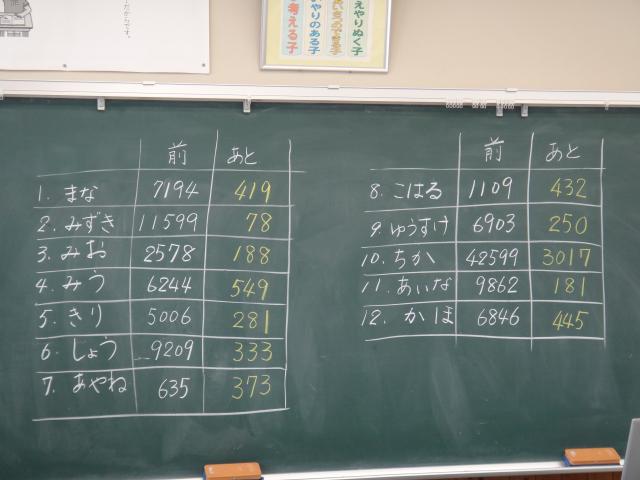 だからです。
考える子
いやりのある子
えやりぬく子
前 あと
1. まな 7194 419
2. みずき 11599 78
3. みお 2578 188
4. みう 6244 549
5. きり 5006 281
6. しょう 9209 333
7. あやね 635 373
前 あと
8. こはる 1109 432
9. ゆうすけ 6903 250
10. ちか 42599 3017
11. あいな 9862 181
12. かほ 6846 445